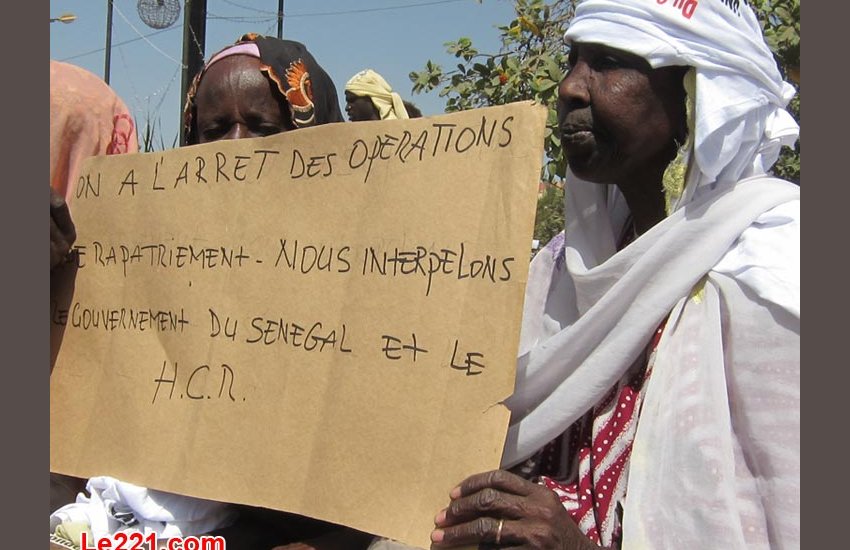 ON A L'ARRET DES OPERATIONS
DE RAPATRIEMENT - NOUS INTERPELONS
LE GOUVERNEMENT DU SENEGAL ET LE
H.C.R.
Le221.com